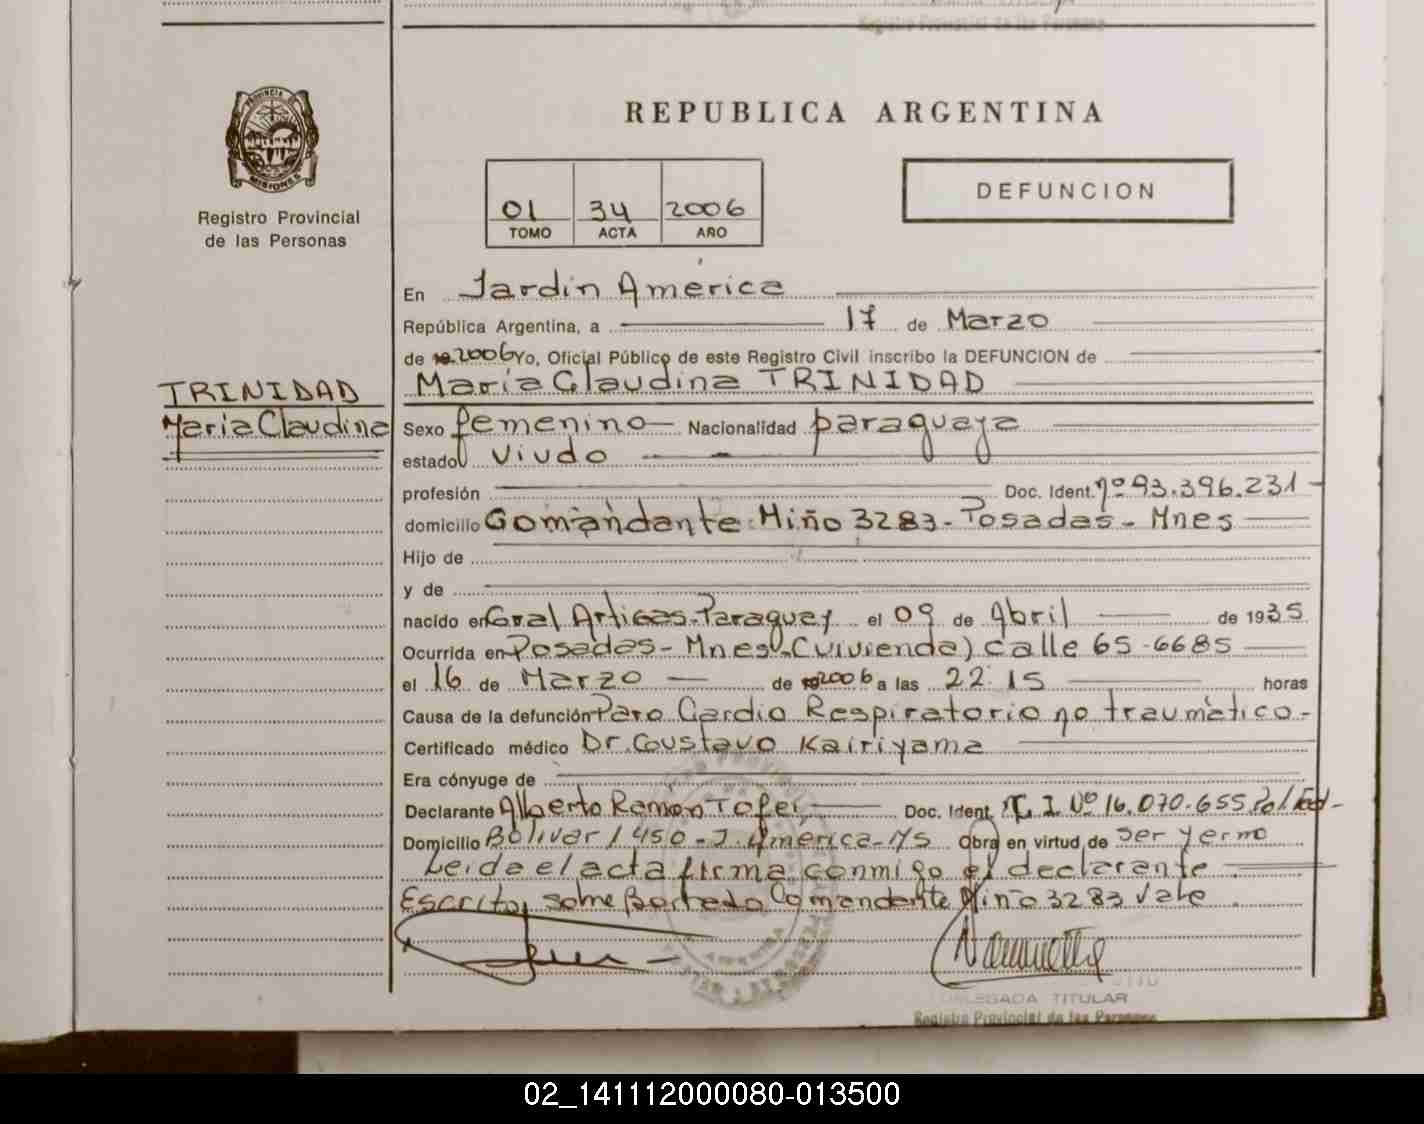 Registro Provincial de las Personas
PROVINCIA DE
MISIONES
Registro Provincial
de las Personas
REPUBLICA ARGENTINA
01 34 2006
TOMO ACTA AÑO
DEFUNCION
En Jardín América
República Argentina, a 17 de Marzo
de 19 2006 Yo, Oficial Público de este Registro Civil inscribo la DEFUNCION de
María Claudina TRINIDAD
TRINIDAD
María Claudina
Sexo femenino Nacionalidad paraguaya
estado viudo
profesión Doc. Ident. nº 93.396.231
domicilio Comandante Miño 3283 - Posadas - Mnes
Hijo de
y de
nacido en Gral Artigas - Paraguay el 09 de Abril de 1935
Ocurrida en Posadas - Mnes - (vivienda) calle 65 - 6685
el 16 de Marzo de 19 2006 a las 22:15 horas
Causa de la defunción Paro Cardio Respiratorio no traumático -
Certificado médico Dr. Gustavo Kairiyama
Era cónyuge de
Declarante Alberto Ramon Tofei Doc. Ident. C.I Nº 16.070.655 Pol Fed -
Domicilio Bolivar 1450 - J. América - Ms Obra en virtud de ser yerno
Leida el acta firma conmigo el declarante
Escrito sobre Borrado Comandante Miño 3283 Vale
DELEGADA TITULAR
Registro Provincial de las Personas
02_141112000080-013500